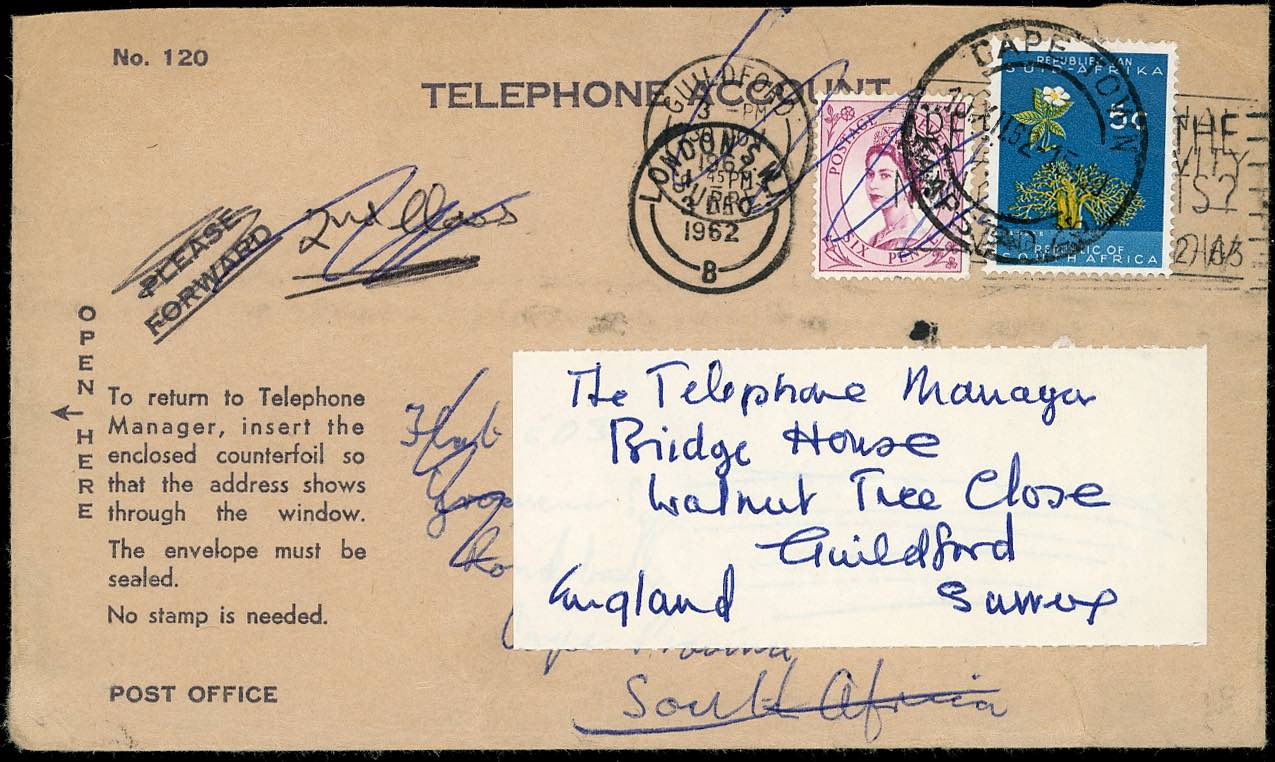 No. 120
TELEPHONE ACCOUNT
GUILDFORD
3 - PM
1962
SURREY
LONDON S.W.1
45 PM
3 DEC
1962
8
POSTAGE
SIX PENCE
CAPE TOWN
REPUBLIEK VAN
SUID-AFRIKA
5c
REPUBLIC OF
SOUTH AFRICA
THE
VITY
TS?
PLEASE
FORWARD
2nd Class
OPEN HERE
To return to Telephone
Manager, insert the
enclosed counterfoil so
that the address shows
through the window.
The envelope must be
sealed.
No stamp is needed.
POST OFFICE
The Telephone Manager
Bridge House
Walnut Tree Close
Guildford
England Surrey
Flat
South Africa